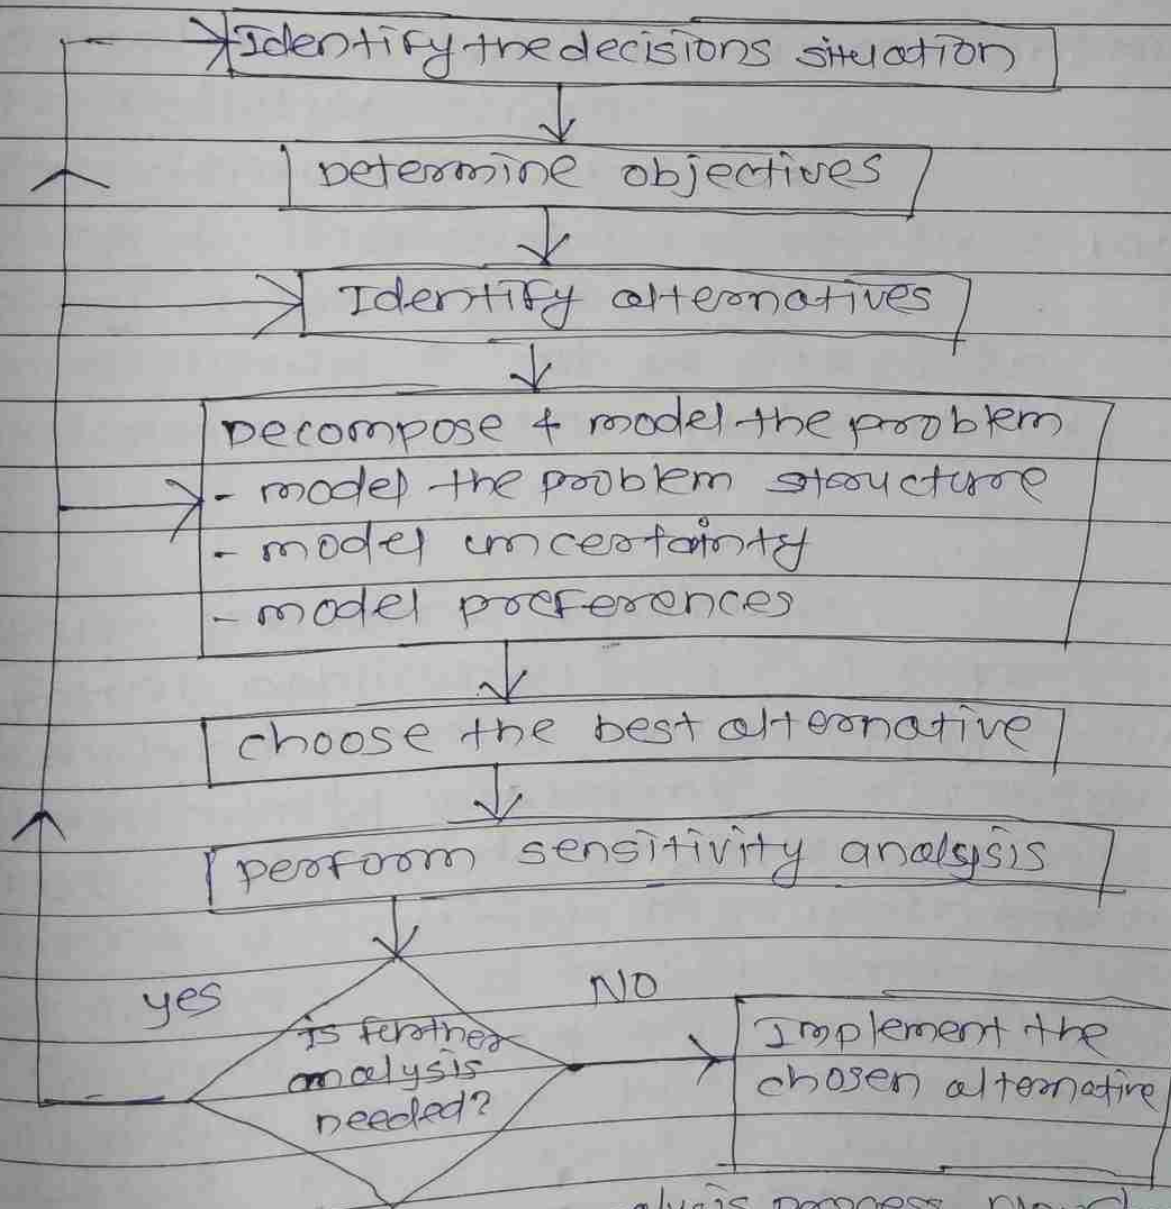 Identify the decisions situation
Determine objectives
Identify alternatives
Decompose & model the problem
- model the problem structure
- model uncertainty
- model preferences
choose the best alternative
perform sensitivity analysis
yes
NO
is further
analysis
needed?
Implement the
chosen alternative
process